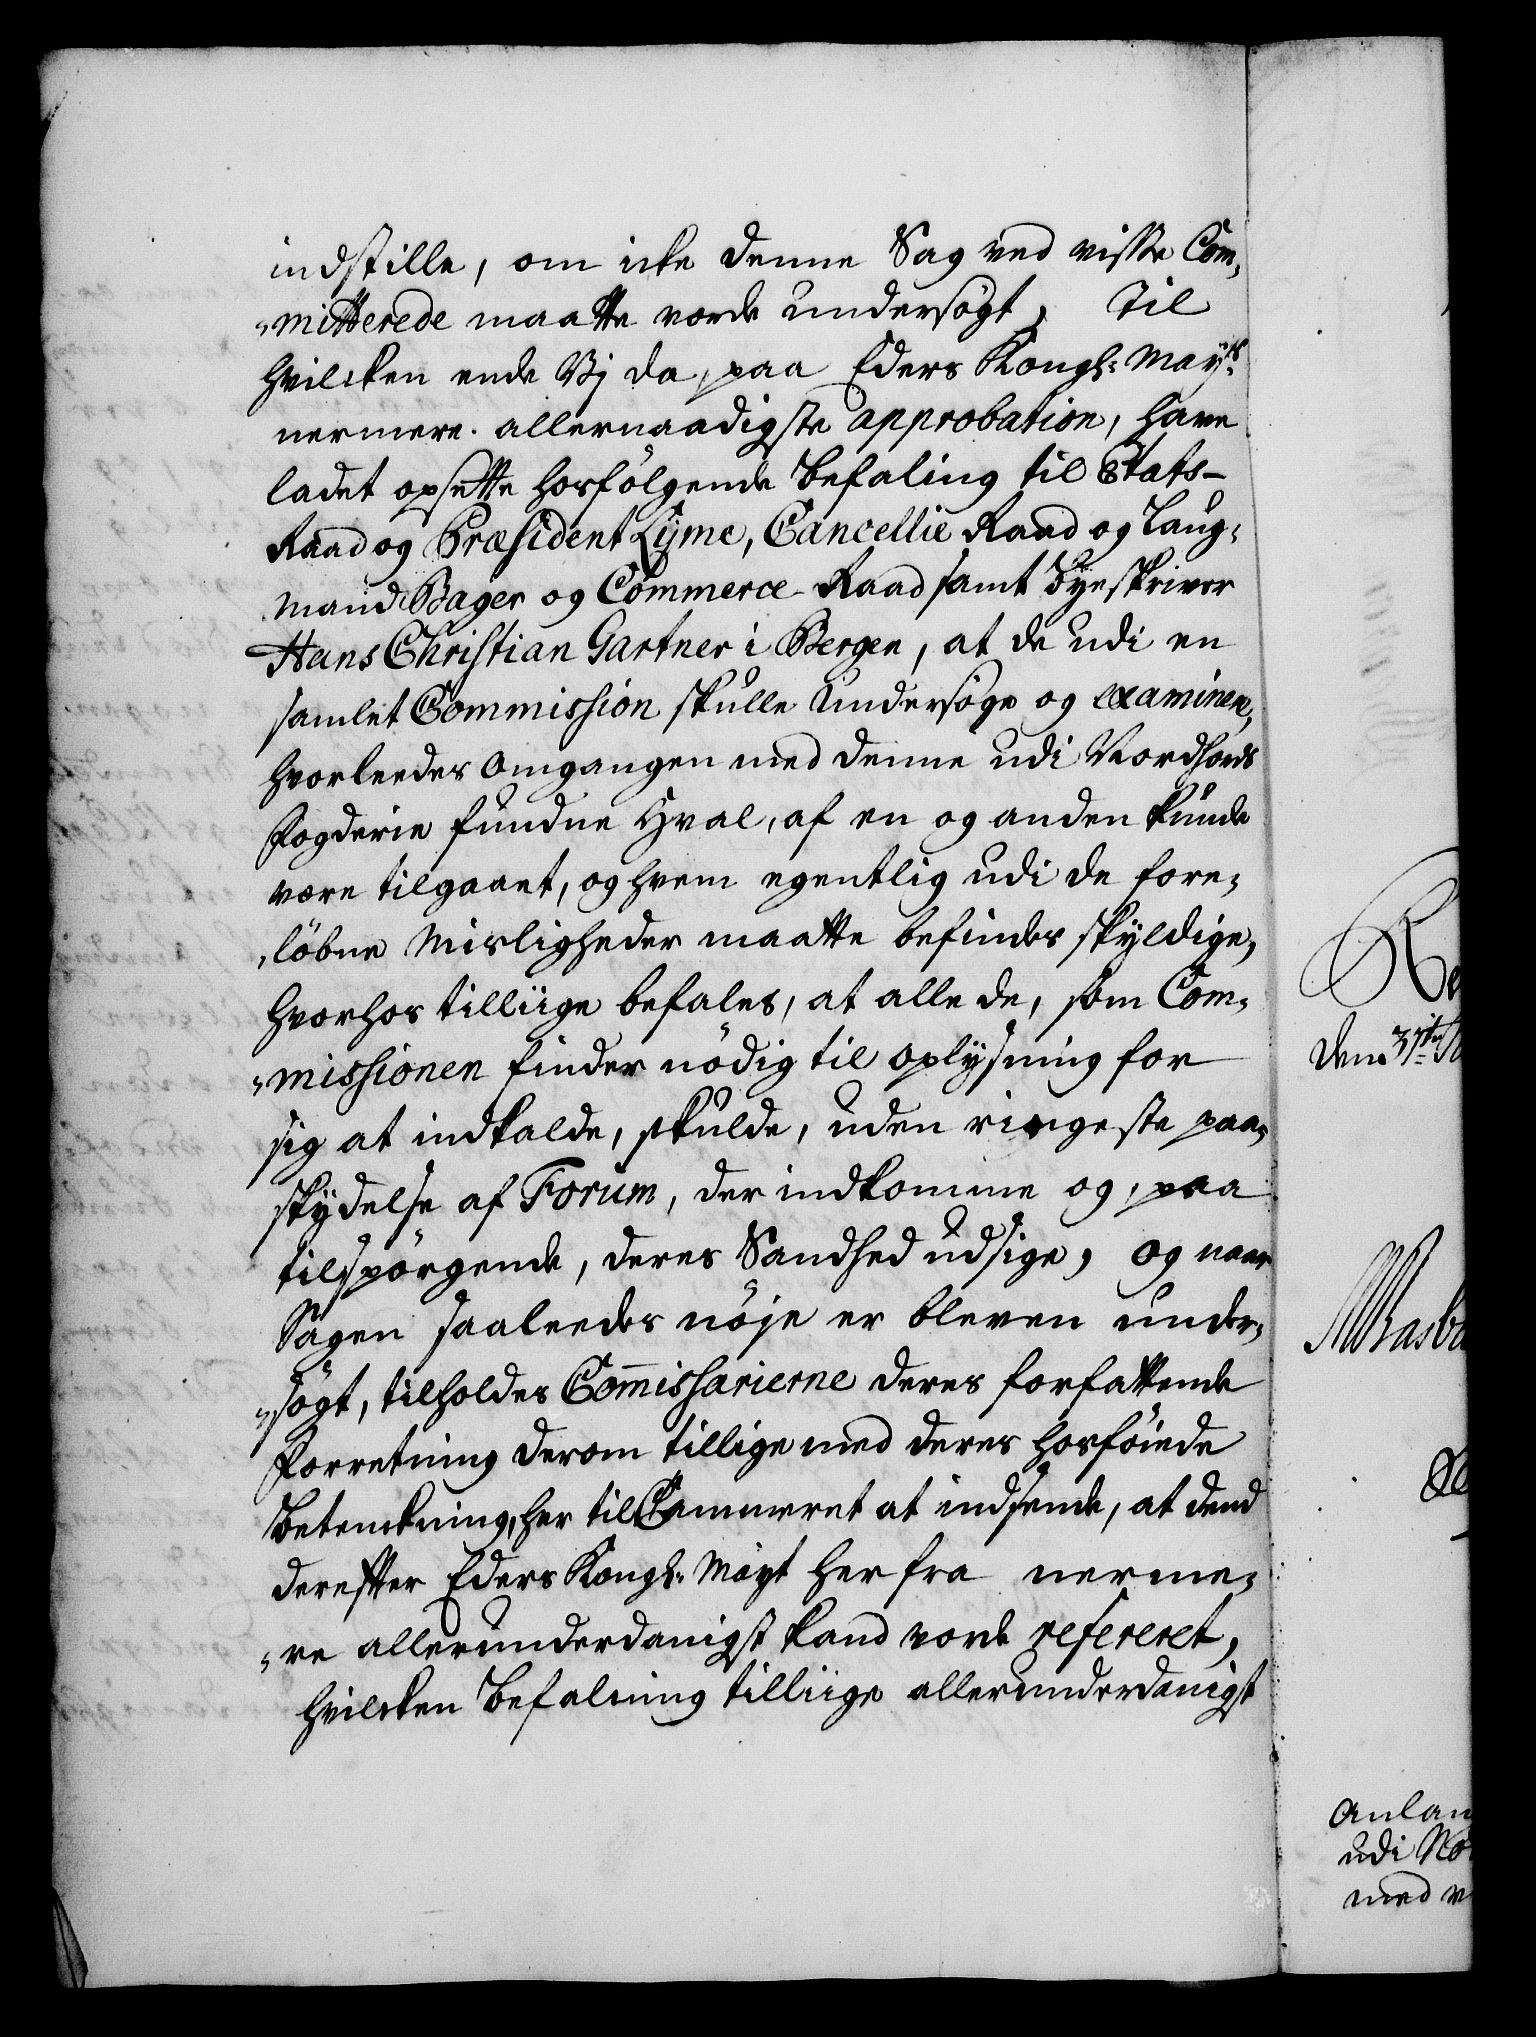 indstille, om icke denne Sag ved visse Com„
„mitterede maatte vorde undersögt, Til
hvilcken ende Vj da, paa Eders Kongl: Mayts
nermere allernaadigste approbation, have
ladet opsette hosfölgende Befaling til Etats-
Raad og Præsident Lÿme, Cancellie Raad og Laug„
mand Bager og Commerce-Raad samt Byeskriver
Hans Christian Gartner i Bergen, at de udi en
samlet Commission skulle undersöge og examinere,
hvorleedes omgangen med denne udi Nordhords
Fogderie fundne Hval, af en og anden kunde
være tilgaaet, og hvem egentlig udi de fore„
„löbne Misligheder maatte befindes skyldige,
hvorhos tilliige befales, at alle de, som Com„
„missionen finder nödig til Oplysning for
sig at indkalde, skulde, uden ringeste paa„
skydelse af Forum, der indkomme og, paa
tilspörgende, deres Sandhed udsige, og naar
Sagen saaleedes nöje er bleven under„
„sögt, tilholdes Com̅issarierne deres forfattende
Forretning derom tillige med deres hosföiede
Betenkning, her til Cammeret at indsende, at dend
derefter Eders Kongl: Mayt her fra nerme„
„re allerunderdanigst kand vorde refereret,
hvilcken Befaling tilliige allerunderdanigst
den 31te
Anlan
udi No
med